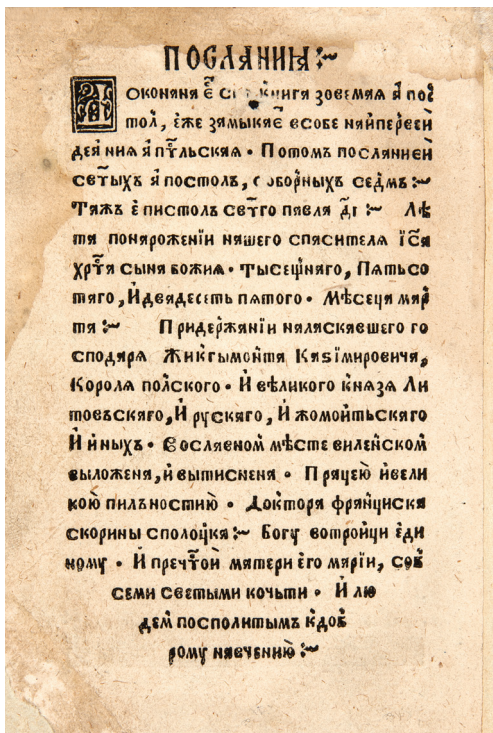 ПОСЛАНИꙖ :~
Доконана є҃ с книга зовемаꙗ апос҃
тол, еже замыкає҃ всобе найперве҃й
деꙗниꙗ ап҃тльскаꙗ · Потомъ посланией
свет҃ыхъ апостолъ, соборных седмъ :~
Тажъ епистол свет҃го павла д҃і :~ Лѣ
та понароженїи нашего спасителꙗ їс҃а
хр҃та сына божиꙗ · тысещнаго, Пятьсо
таго, Идвадесеть пятого · Мѣсеца мар
та :~ Придержанїи наꙗскавшего го
сподара Жикгымонта Казімировича,
Королꙗ полского · И вѣликого кнꙗзꙗ Ли
товъскаго, И рускаго, И жомойтьскаго
И иныхъ · Вославном мѣсте виленском
выложена, и вытиснена · Працею ивели
кою пилъностию · Доктора францыска
скорины сполоцка :~ Богу вотройци еди
ному · И преч҃той матери его марїи, сов
семи светыми кочьти · И лю
дем посполитымъ кдоб
рому навчению :~